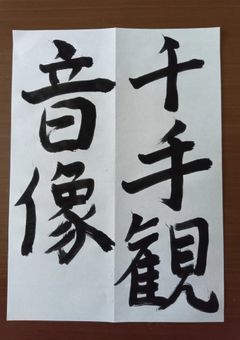 千手観
音像